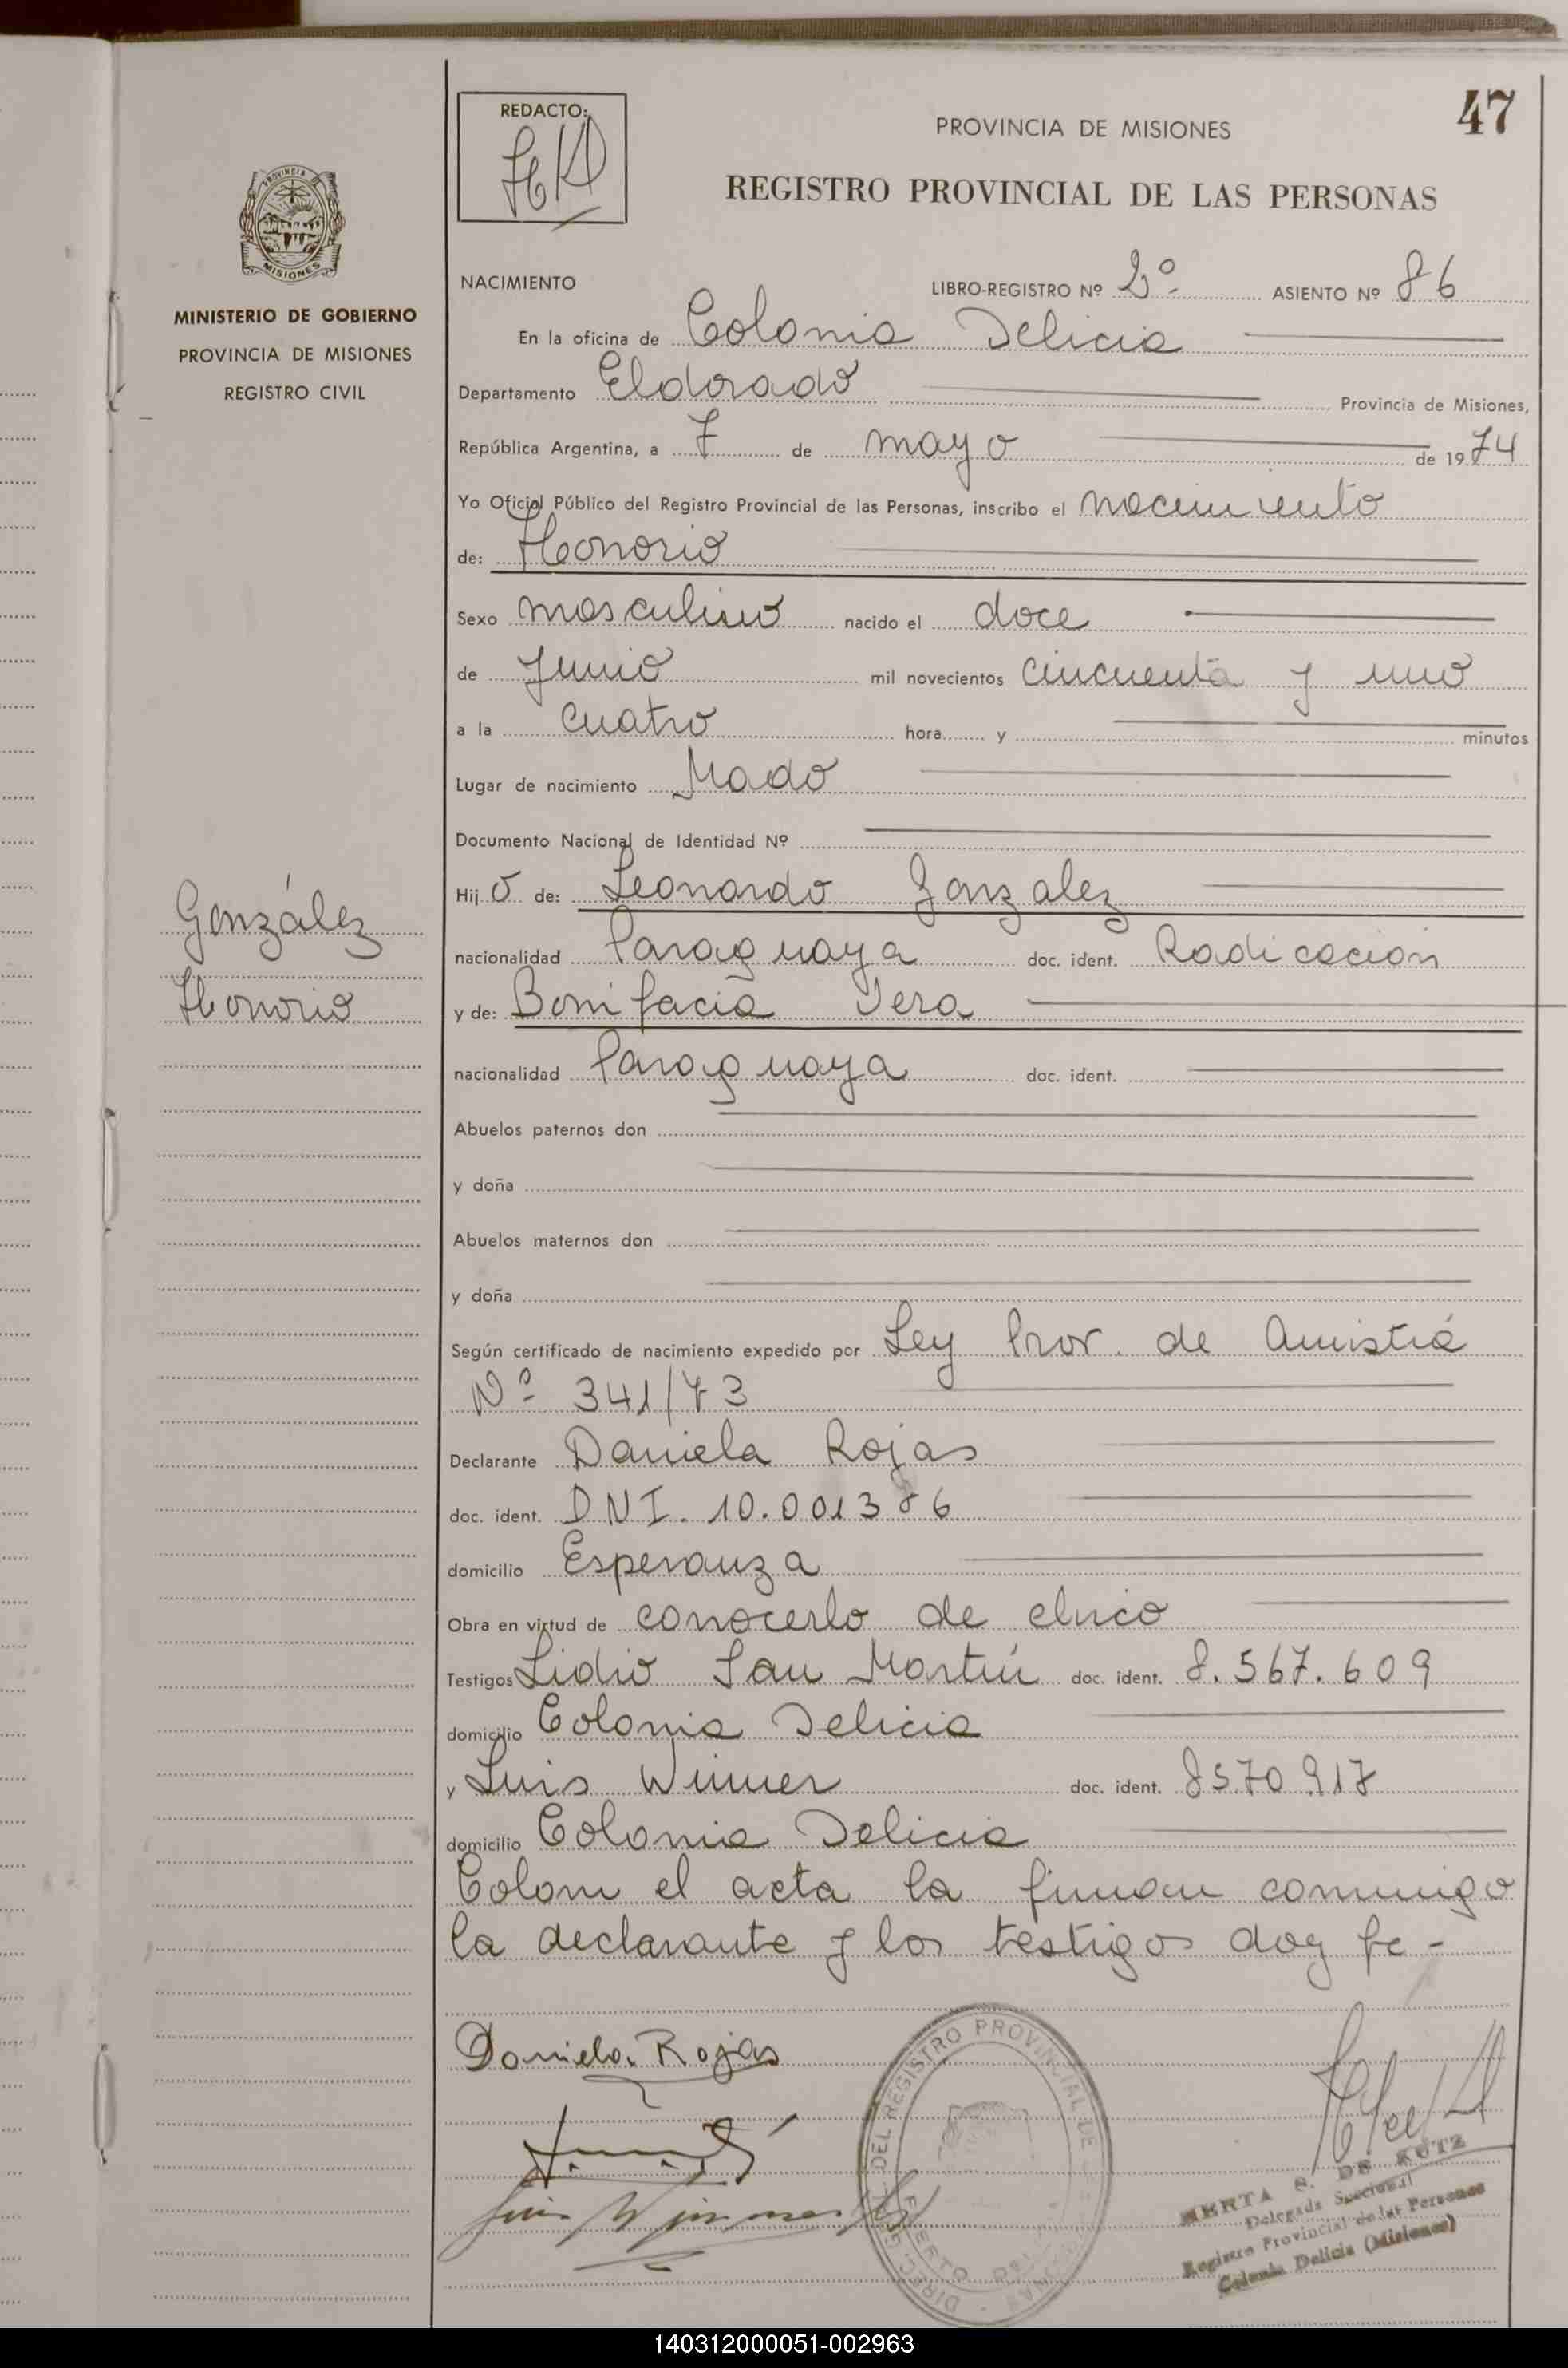 47
REDACTO:
PROVINCIA DE MISIONES
REGISTRO PROVINCIAL DE LAS PERSONAS
PROVINCIA DE
MISIONES
MINISTERIO DE GOBIERNO
PROVINCIA DE MISIONES
REGISTRO CIVIL
González
Honorio
NACIMIENTO LIBRO-REGISTRO Nº 2º ASIENTO Nº 86
En la oficina de Colonia Delicia
Departamento Eldorado Provincia de Misiones,
República Argentina, a 7 de mayo de 1974
Yo Oficial Público del Registro Provincial de las Personas, inscribo el nacimiento
de: Honorio
Sexo masculino nacido el doce
de Junio mil novecientos cincuenta y uno
a la cuatro hora y minutos
Lugar de nacimiento Mado
Documento Nacional de Identidad Nº
Hijo de: Leonardo Gonzalez
nacionalidad Paraguaya doc. ident. Radicación
y de: Bonifacia Vera
nacionalidad Paraguaya doc. ident.
Abuelos paternos don
y doña
Abuelos maternos don
y doña
Según certificado de nacimiento expedido por Ley Prov. de Amistiá
Nº 341/73
Declarante Daniela Rojas
doc. ident. DNI. 10.001386
domicilio Esperanza
Obra en virtud de conocerlo de chico
Testigos Lidio San Martín doc. ident. 8.567.609
domicilio Colonia Delicia
y Luis Wimer doc. ident. 8570.917
domicilio Colonia Delicia
el acta la firman conmigo
la declarante y los testigos doy fe -
Daniela Rojas
DIREC. GRAL. DEL REGISTRO PROVINCIAL DE
HERTA S. DE KUTZ
Delegada Seccional
Registro Provincial de las Personas
Colonia Delicia (Misiones)
140312000051-002963